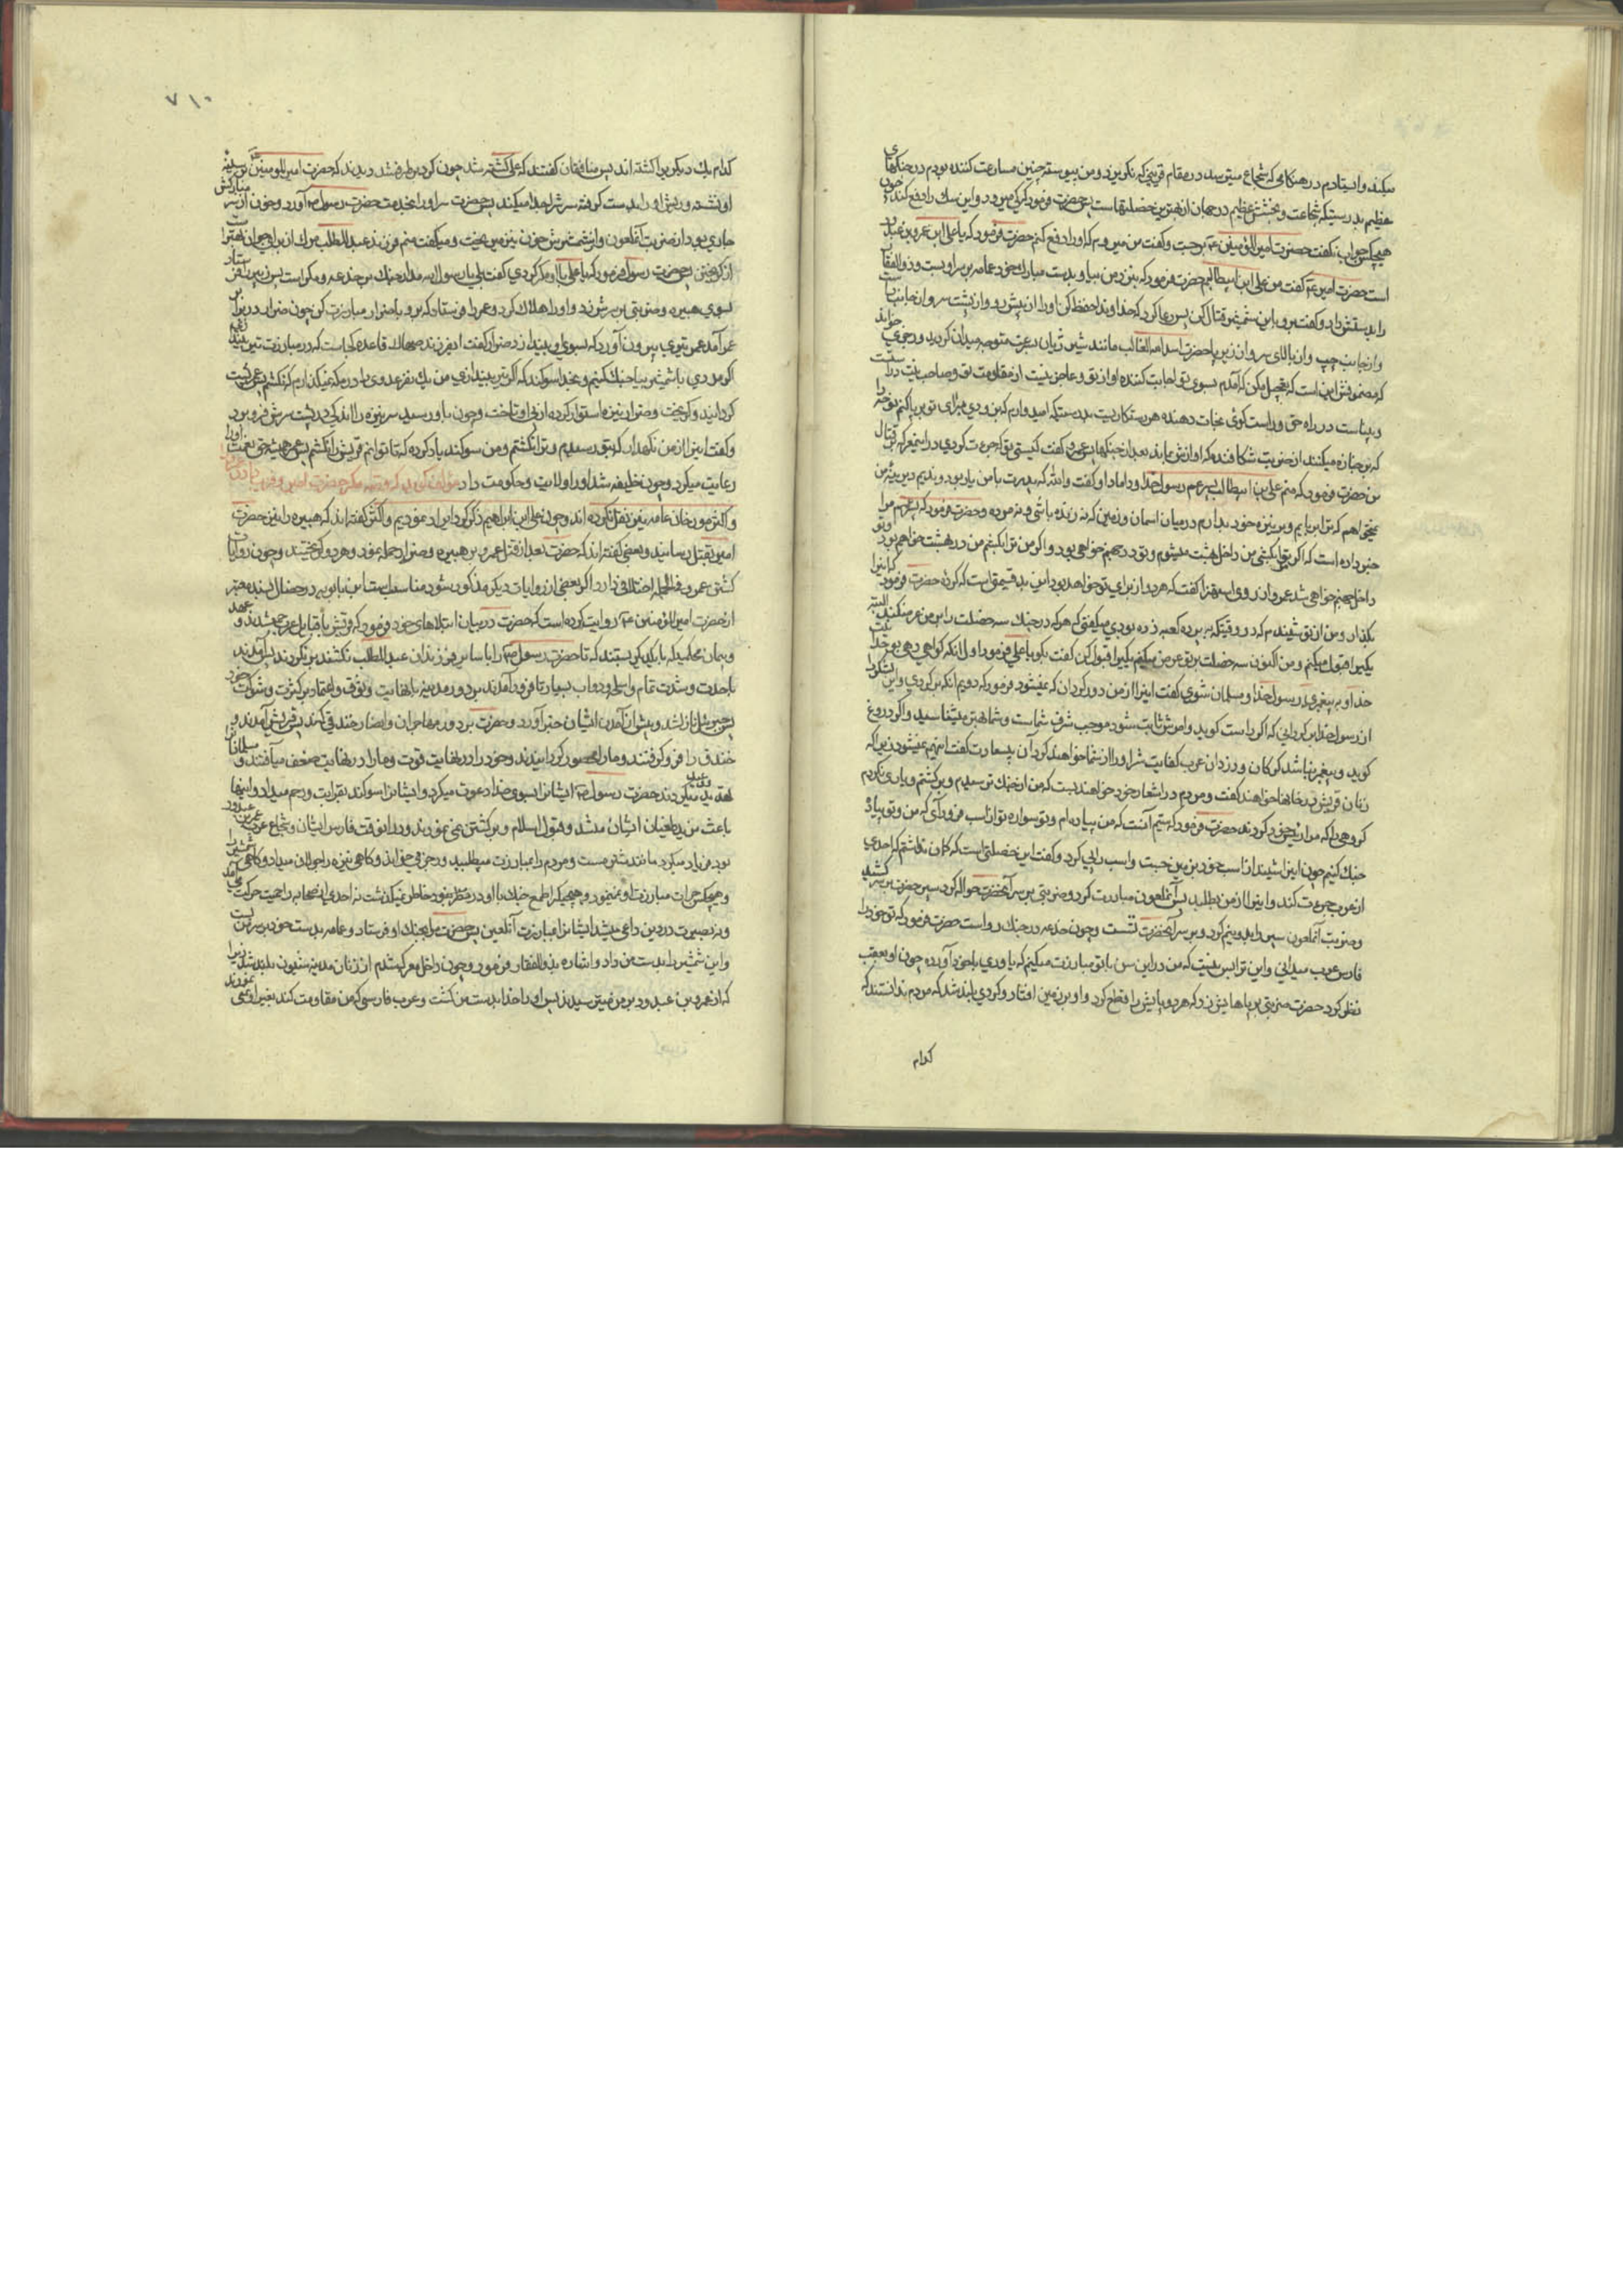 میکند و ایستادم در هنکامی که شجاع میترسد در مقام قرینی که نکریزد و من پیوسته چنین مسارعت کننده بودم در جنکهای
عظیم بدرستیکه شجاعت و بخشش عظیم در جهان از بهترین خصلتهاست پس حضرت فرمود که کی میرود و این سك را دفع کند چون
هیچکس جواب نکفت حضرت امیر المؤمنین ع برجست و کفت من میروم که او را دفع کنم حضرت فرمود که یا علی این عمرو بن عبد ود
است حضرت امیر ع کفت من علی ابن ابیطالبم حضرت فرمود که بنزد من بیا و بدست مبارك خود عمامه بر سر او بست و ذو الفقار
را بدستش داد و کفت برو باین شمشیر قتال کن پس دعا کرد که خداوندا حفظ کن او را از پیش رو و از پشت سر و از جانب راست
و از جانب چپ و از بالای سر و از زیر پا حضرت اسد الله الغالب مانند شیر ژیان بسرعت متوجه میدان کردید و رجزی خواند
که مضمونش این است که تعجیل مکن که آمد بسوی تو اجابت کننده آواز تو و عاجز نیست از مقاومت تو و صاحب نیت درست
و بیناست در راه حق و راست کوئی نجات دهنده هر رستکاریست بدرستیکه امیدوارم که بزودی بر پا کنم نوحه را
که بر جنازه میکنند از ضربت شکافنده که آوازش بماند بعد از جنکها پس عمرو کفت کیستی تو که جرءت کردی در این معرکه بر قتال
من حضرت فرمود که منم علی بن ابیطالب پسر عم رسول خدا و داماد او کفت والله که پدرت با من یار بود و ندیم دیرینه من
نمیخواهم که ترا بربایم و بر نیزه خود بدارم در میان آسمان و زمین که نه زنده باشی و نه مرده و حضرت فرمود که پسر عم مرا
خبر داده است که اکر تو مرا بکشی من داخل بهشت میشوم و تو در جهنم خواهی بود و اکر من ترا بکشم من در بهشت خواهم بود و تو
داخل جهنم خواهی شد عمرو از روی استهزا کفت که هر دو از برای تو خواهد بود این بد قسمتی است که کردهٔ حضرت فرمود که اینرا
بکذار و من از تو شنیدم که در وقتیکه به پرده کعبه زده بودی میکفتی که هر که در جنك سه خصلت را بر من عرض کند البته
یکیرا قبول میکنم و من اکنون سه خصلت بر تو عرض میکنم یکیرا قبول کن کفت بکو یا علی فرمود اول آنکه کواهی دهی بوحدانیت
خدا و به پیغمبری رسول خدا و مسلمان شوی کفت اینرا از من دور کردان که نمیشود فرمود که دویم آنکه برکردی و این لشکر را
از رسول خدا برکردانی که اکر راست کوید و امرش ثابت شود موجب شرف شماست و شما بهتر میشناسید و اکر دروغ
کوید و پیغمبر نباشد کرکان و دزدان عرب کفایت شر او را از شما خواهند کرد آن بیسعادت کفت اینهم نمیشود زیرا که
زنان قریش در خانها خواهند کفت و مردم در اشعار خود خواهند بست که من از جنك ترسیدم و برکشتم و یاری نکردم
کروهی را که مرا رئیس خود کردند حضرت فرمود که سیّم آنست که من پیاده ام و تو سواره تو از اسب فرود آی که من و تو پیاده
جنك کنیم چون این را شنید از اسب خود بزیر جست و اسب را پی کرد و کفت این خصلتی است که کمان نداشتم که احدی
از عرب جرءت کند و اینرا از من بطلبد پس آنملعون مبادرت کرد و ضربتی بر سر آنحضرت حواله کرد پس حضرت سپر بر سر کشید
و ضربت آنملعون سپر را بدو نیم کرد و بر سر آنحضرت نشست و چون خدعه در جنك رواست حضرت فرمود که تو خود را
فارس عرب میدانی و این ترا بس نیست که من در این سن با تو مبارزت میکنم که یاوری با خود آورده چون او بعقب
نظر کرد حضرت ضربتی بر پاهایش زد که هر دو پایش را قطع کرد و او بر زمین افتاد و کردی بلند شد که مردم ندانستند که
کدام
۷۱۰
کدام یك دیکریرا کشته اند پس منافقان کفتند که علی کشته شد چون کرد بر طرف شد دیدند که حضرت امیر المومنین ع بر سینه
او نشسته و ریش او را بدست کرفته سرش را جدا میکند پس حضرت سر او را بخدمت حضرت رسول ص آورد و خون از سر مبارکش
جاری بود از ضربت آنملعون و از شمشیرش خون بزمین میریخت و میکفت منم فرزند عبد المطلب مرك از برای جوان بهتر است
از کریختن پس حضرت رسول فرمود که یا علی با او مکر کردی کفت بلی یا رسول الله مدار جنك بر خدعه و مکر است پس زبیر
بسوی هبیره و ضربتی بر سرش زد و او را هلاك کرد و عمر را فرستاد که برو با ضرار مبارزت کن چون ضرار در برابر
عمر آمد عمر تیری بیرون آورد که بسوی او بیندازد ضرار کفت ای فرزند صهاك قاعدهٔ کجاست که در مبارزت تیر
اکر مردی با شمشیر بیا جنك کنیم و بخدا سوکند که اکر تیر بیندازی من یك نفر عدوی را در مکه نمیکذارم که نکشم پس عمر پشت
کردانید و کریخت و ضرار نیزه استوار کرده از پی او تاخت و چون باو رسید سر نیزه را اندکی در پشت سرش فرو برد
و کفت اینرا از من نکهدار که بتو رسیدم و ترا نکشتم و من سوکند یاد کرده ام که تا توانم قریش را نکشم پس عمر همیشه حق نعمت او را
رعایت میکرد و چون خلیفه شد او را ولایت و حکومت داد مؤلف کوید که
و اکثر مورخان عامه نیز نقل کرده اند و چون علی ابن ابراهیم ذکر کرد ایراد نمودیم و اکثر کفته اند که هبیره را نیز حضرت
امیر بقتل رسانید و بعضی کفته اند که حضرت بعد از قتل عمرو بر هبیره و ضرار حمله نمود و هر دو کریختند و چون روایات
کشتن عمرو فی الجمله اختلافی دارد اکر بعضی از روایات دیکر مذکور شود مناسب است ابن بابویه در خصال بسند معتبر
از حضرت امیر المؤمنین ع روایت کرده است که حضرت در بیان ابتلاهای خود فرمود که قریش با قبایل عرب جمع شدند و عهد
و پیمان محکمی که با یکدیکر بستند که تا حضرت رسول ص را با سایر فرزندان عبد المطلب نکشند برنکردند پس آمدند
با حدت و شدت تمام و اسلحه و دواب بسیار تا فرود آمدند بر در مدینه با نهایت وثوق و اعتماد بر کثرت و شوکت خود
پس جبرئیل نازل شد و پیش از آمدن ایشان خبر آورد و حضرت بر دور مهاجران و انصار خندقی کند پس قریش آمدند و
خندق را فرو کرفتند و ما را محصور کردانیدند و خود را در نهایت قوت و ما را در نهایت ضعف میافتند و مسلمانان را
تهدید و وعید میکردند حضرت رسول ص ایشانرا بسوی خدا دعوت میکرد و ایشانرا سوکند بقرابت و رحم میداد و اینها
باعث مزید طغیان ایشان میشد و قبول اسلام و برکشتن نمی نمودند و در آنوقت فارس ایشان و شجاع عرب عمرو بن عبدود
بود فریاد میکرد مانند شتر مست و مردم را بمبارزت میطلبید و رجز میخواند و کاهی نیزه را جولان میداد و کاهی شمشیر را
و هیچکس جرات مبارزت او نمینمود و هیچیکرا طمع جنك با او در خاطر نمیکذشت نه احدی از صحابه را حمیت بحرکت
و نه بصیرت در دین داعی میشد ایشانرا بمبارزت آنلعین پس حضرت مرا بجنك او فرستاد و عمامه بدست خود بر سر من بست
و این شمشیر را بدست من داد و اشاره بذو الفقار فرمود و چون داخل معرکه شدم از زنان مدینه شیون بلند شد زیرا
که از عمرو بن عبدود بر من میترسیدند پس او را خدا بدست من کشت و عرب فارسی که من مقاومت کند بغیر او نمی نمودند